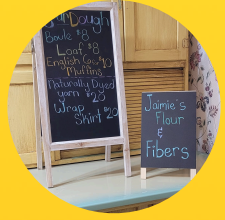 Dough
Boule $8
Loaf $8
English
Muffins $10
Naturally Dyed
yarn $28
Wrap
Skirt $20
Jaimie's
Flour
&
Fibers